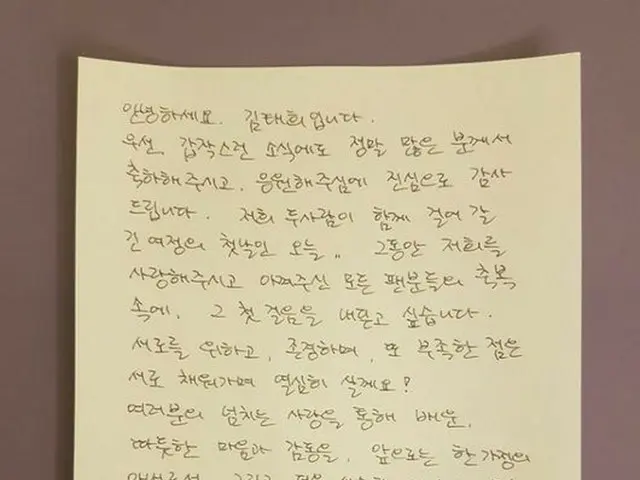 안녕하세요. 김태희입니다.
우선, 갑작스런 소식에도 정말 많은 분께서
축하해주시고, 응원해주심에 진심으로 감사
드립니다. 저희 두사람이 함께 걸어 갈
긴 여정의 첫날인 오늘,, 그동안 저희를
사랑해주시고 아껴주신 모든 팬분들의 축복
속에, 그 첫 걸음을 내딛고 싶습니다.
서로를 위하고, 존경하며, 또 부족한 점은
서로 채워가며 열심히 살게요!
여러분의 넘치는 사랑을 통해 배운,
따듯한 마음과 감동을, 앞으로는 한 가정의